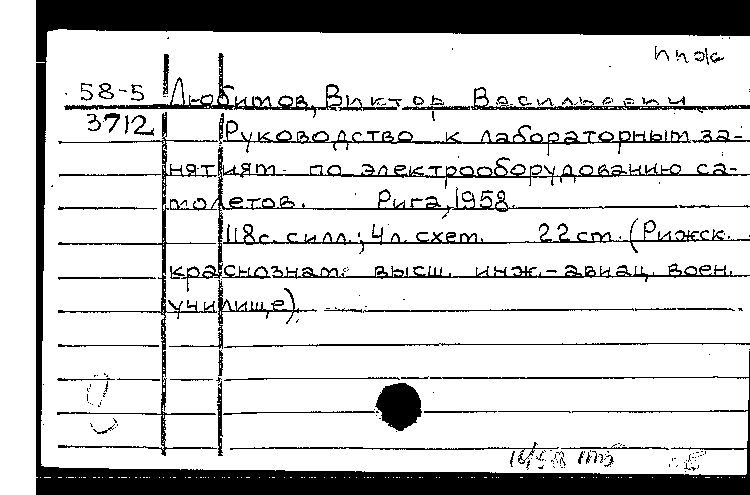 58-5 Любимов, Виктор Васильевич
3712 Руководство к лабораторным за-
нятиям по электрооборудованию са-
молетов. Рига, 1958.
118с. силл.; 4л. схем. 22см. (Рижск.
краснознам. высш. инж.-авиац. воен.
училище).